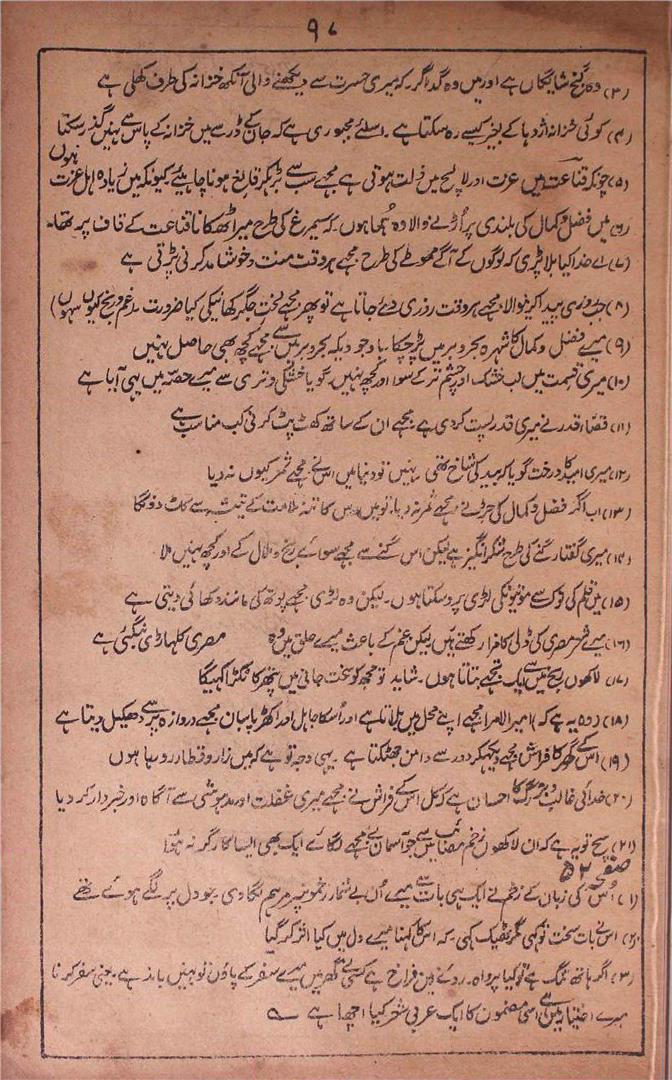 ۹۷
(۳) وہ گنج شایگاں ہے اور میں وہ گداگر۔ کہ میری حسرت سے دیکھنے والی آنکھ خزانہ کی طرف کھلی ہے
(۴) کوئی خزانہ اژدہا کے بغیر کیسے رہ سکتا ہے۔ اسلئے مجبوری ہے کہ جان کے ڈر سے میں خزانہ کے پاس سے نہیں گذر سکتا
(۵) چونکہ قناعت میں عزت اور لالچ میں ذلت ہوتی ہے مجھے سب سے بڑھکر قانع ہونا چاہیئے کیونکہ میں زیادہ اہل عزت ہوں
(۶) میں فضل و کمال کی بلندی پر اُڑنے والا وہ ہُما ہوں۔ کہ سیمرغ کی طرح میرا ٹھکانا قناعت کے قاف پر تھا۔
(۷) اے خدا کیا بلا پڑی کہ لوگوں کے آگے مجھے ہر وقت منت و خوشامد کرنی پڑتی ہے
(۸) جب روزی پیدا کرنیوالا مجھے ہر وقت روزی دئے جاتا ہے تو پھر مجھے لخت جگر کھانیکی کیا ضرورت۔ (غم و رنج کیوں سہوں)
(۹) میرے فضل و کمال کا شہرہ بحر و بر میں پڑ چکا۔ باوجودیکہ بحر و بر میں سے مجھے کچھ بھی حاصل نہیں
(۱۰) میری قسمت میں لب خشک اور چشم تر کے سوا اور کچھ نہیں۔ گویا خشکی و تری سے میرے حصّہ میں یہی آیا ہے
(۱۱) قضا و قدر نے میری قدر پست کر دی ہے مجھے ان کے ساتھ کھٹ پٹ کرنی کب مناسب ہے
(۱۲) میری امید کا درخت گویا کہ بید کی شاخ تھی نہیں تو دنیا میں اس نے مجھے ثمر کیوں نہ دیا
(۱۳) اب اگر فضل و کمال کی جڑ نے مجھے ثمر نہ دیا۔ تو میں اس کا تنہ ملامت کے تیشہ سے کاٹ دونگا
(۱۴) میری گفتار گنے کی طرح شکر انگیز ہے لیکن اس گنے سے مجھے سوائے رنج و ملال کے اور کچھ نہیں ملا
(۱۵) میں قلم کی نوک سے موتیونکی لڑی پرو سکتا ہوں۔ لیکن وہ لڑی مجھے پوتھ کی مانند دکھائی دیتی ہے
(۱۶) میرے شعر مصری کی ڈلی کا مزا رکھتے ہیں لیکن غم کے باعث میرے حلق میں وہ مصری کلہاڑی بنگئی ہے
(۱۷) لاکھوں رنج میں سے ایک تجھے بتاتا ہوں۔ شاید تو مجھکو سخت جانی میں پتھر کا ٹکڑا کہیگا
(۱۸) (وہ یہ ہے کہ) امیر الامرا مجھے اپنے محل میں بلاتا ہے اور اُسکا جاہل اور اکھڑ پاسبان مجھے دروازہ پر سے دھکیل دیتا ہے
(۱۹) اُس کے گھر کا فراش مجھے دیکھکر دور سے دامن جھٹکتا ہے یہی وجہ تو ہے کہ میں زار و قطار رو رہا ہوں
(۲۰) خدائے غالب و بزرگ کا احسان ہے کہ کل اس کے فراش نے مجھے میری غفلت اور مدہوشی سے آگاہ اور خبردار کر دیا
(۲۱) سچ تو یہ ہے کہ ان لاکھوں زخم مصائب میں سے جو آسمان نے مجھے لگائے ایک بھی ایسا کارگر نہ ہوا
صفحہ ۵۲
(۱) اُس کی زبان کے زخم نے ایک ہی بات سے میرے اُن بے شمار زخموں پر مرہم لگا دی۔ جو دل پر لگے ہوئے تھے
(۲) اس نے بات سخت تو کہی مگر ٹھیک کہی۔ کہ اس کا کہنا میرے دل میں کیا اثر کر گیا
(۳) اگر ہاتھ تنگ ہے تو کیا پرواہ۔ روئے زمین فراخ ہے کسی نے گھر میں میرے سفر کے پاؤں تو نہیں باندھے یعنی سفر کرنا
میرے اختیار میں ہے اسی مضمون کا ایک عربی شعر کیا اچھا ہے